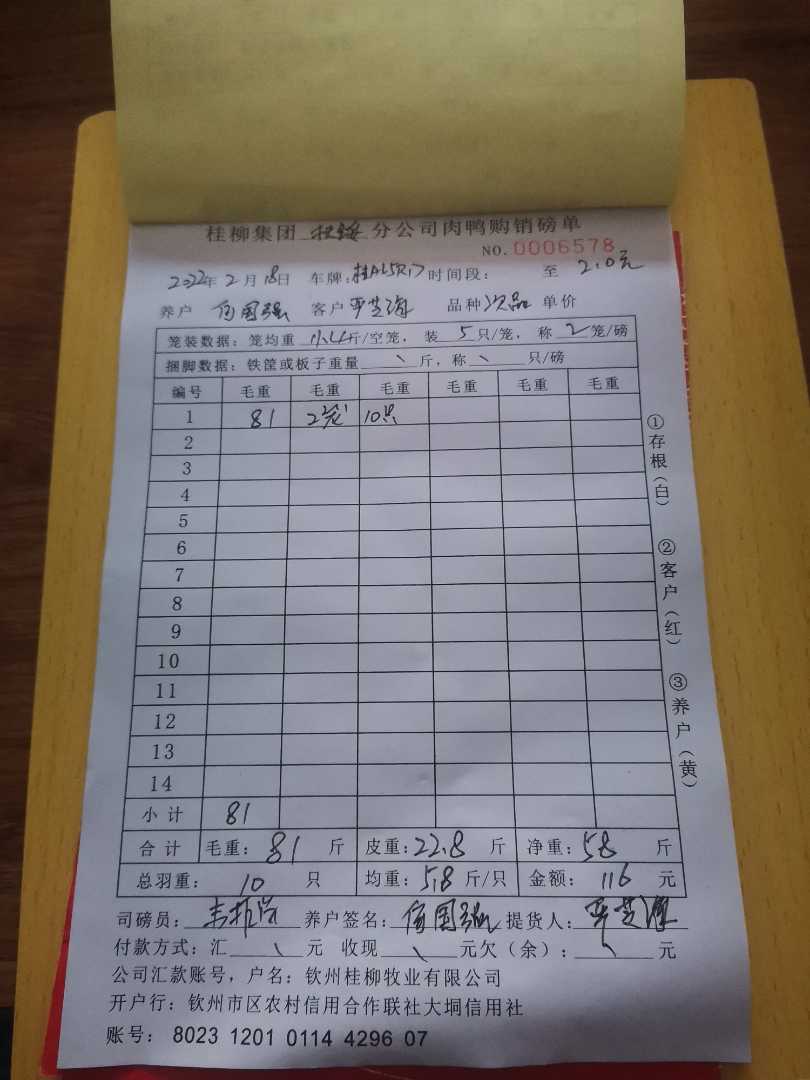 桂柳集团 扶绥 分公司肉鸭购销磅单
NO.0006578
2022年2月18日 车牌:桂AL5R17 时间段: 至 2.0元
养户 伍国强 客户 严芝海 品种 次品 单价
笼装数据:笼均重 11.4斤/空笼,装 5 只/笼,称 2 笼/磅
捆脚数据:铁筐或板子重量 \ 斤,称 \ 只/磅
编号 毛重 毛重 毛重 毛重 毛重 毛重
1 81 2笼 10只
2
3
4
5
6
7
8
9
10
11
12
13
14
小计 81
合计 毛重:81 斤 皮重:22.8 斤 净重:58 斤
总羽重:10 只 均重:5.8 斤/只 金额:116 元
司磅员: 养户签名:伍国强 提货人:严芝海
付款方式:汇 \ 元 收现 \ 元欠(余): \ 元
公司汇款账号,户名:钦州桂柳牧业有限公司
开户行:钦州市区农村信用合作联社大垌信用社
账号: 8023 1201 0114 4296 07
①存根(白) ②客户(红) ③养户(黄)